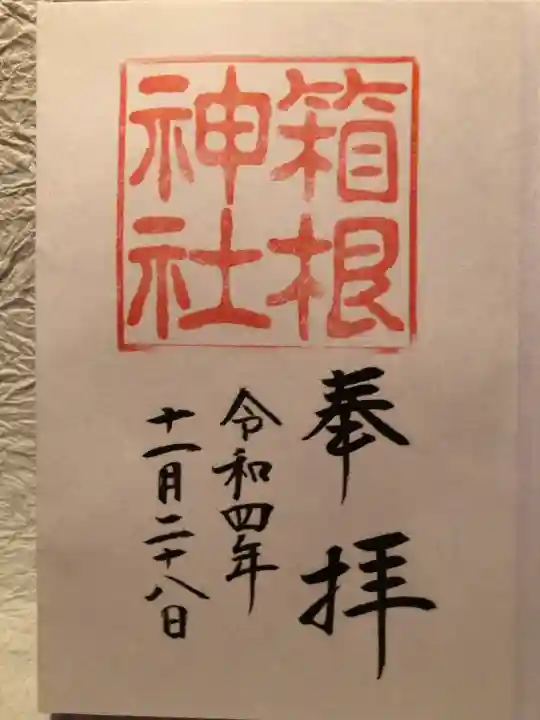 箱根
神社
奉拝
令和四年
十一月二十八日